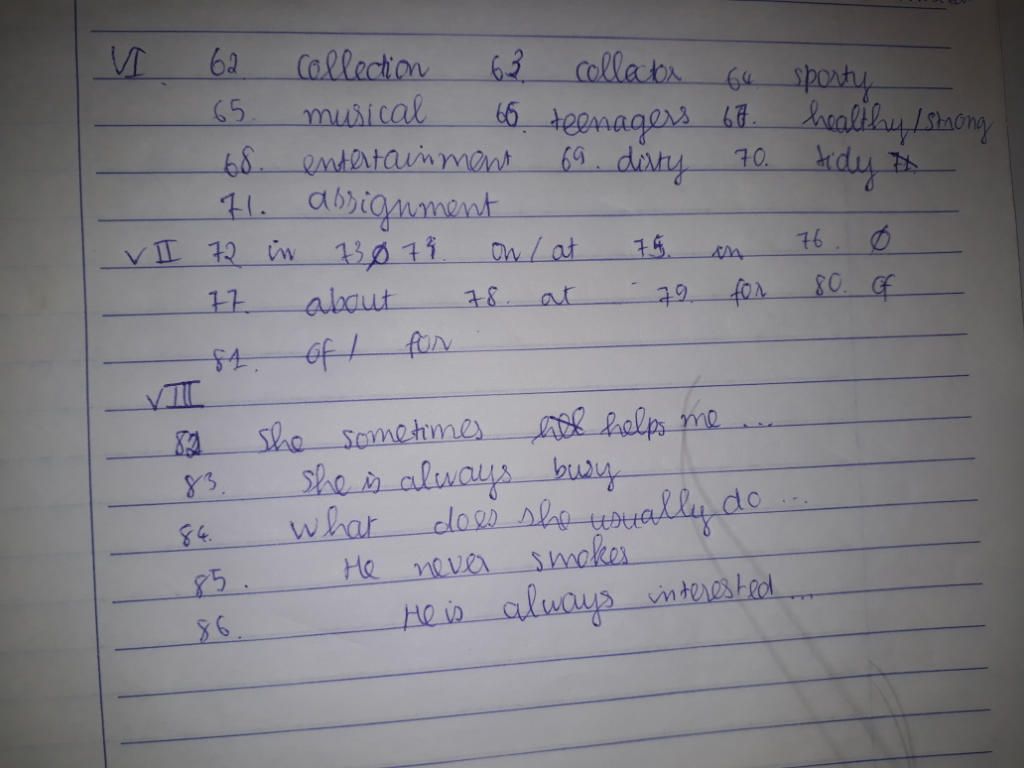 VI. 62 collection 63. collector 64 sporty
65. musical 66. teenagers 67. healthy/strong
68. entertainment 69. dirty 70. tidy
71. assignment
VII 72 in 73 Ø 74. on/at 75. on 76. Ø
77. about 78. at 79. for 80. of
81. of / for
VIII
82 She sometimes helps me ...
83. She is always busy
84. What does she usually do ...
85. He never smokes
86. He is always interested ...